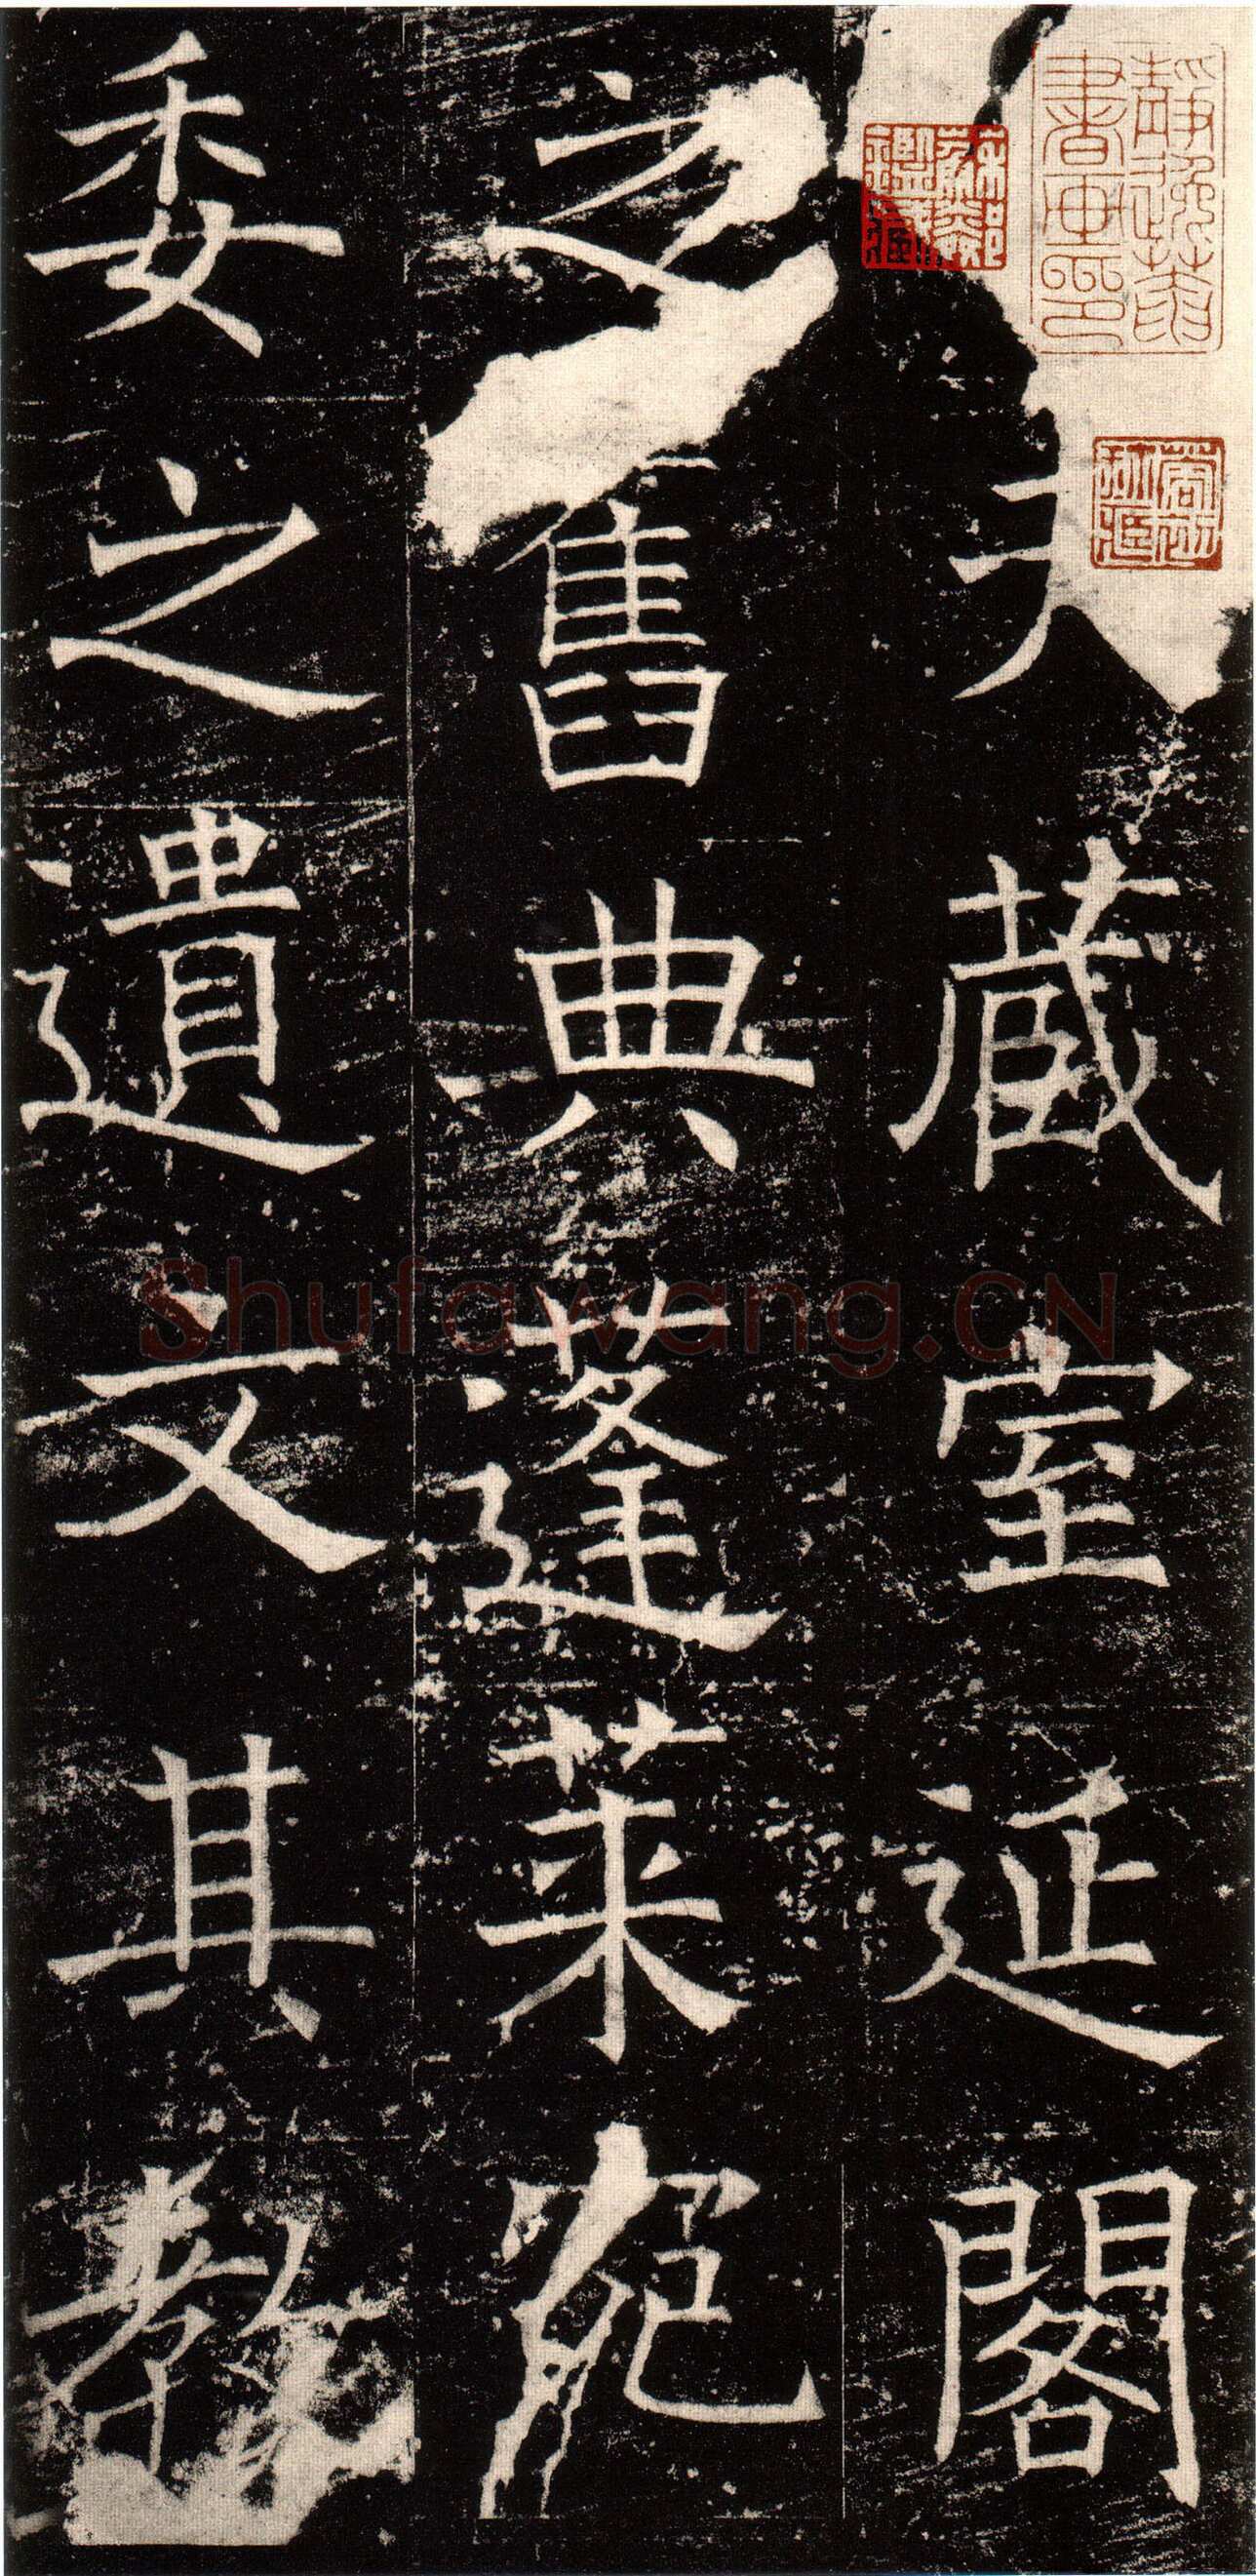 藏室延閣
之舊典蓬萊宛
委之遺文其教
Shufawang.CN